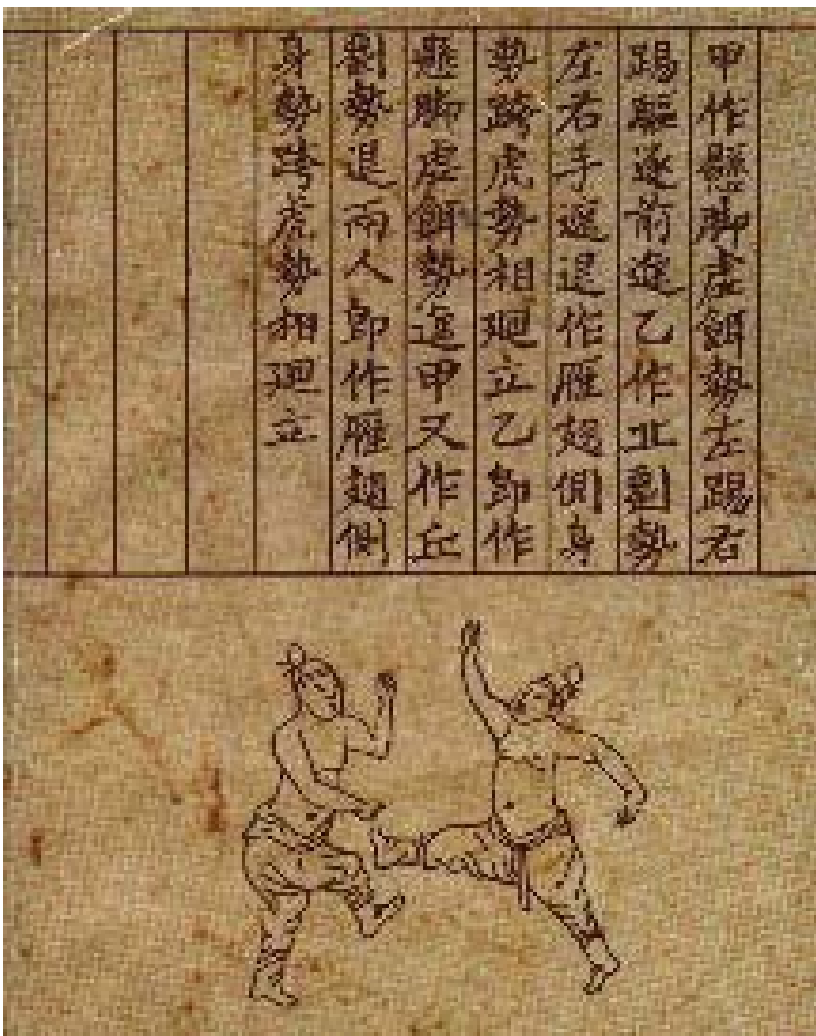 甲作懸脚虛餌勢左踢右
踢驅逐前進乙作丘劉勢
左右手遮退作雁翅側身
勢跨虎勢相廻立乙即作
懸脚虛餌勢進甲又作丘
劉勢退兩人即作雁翅側
身勢跨虎勢相廻立